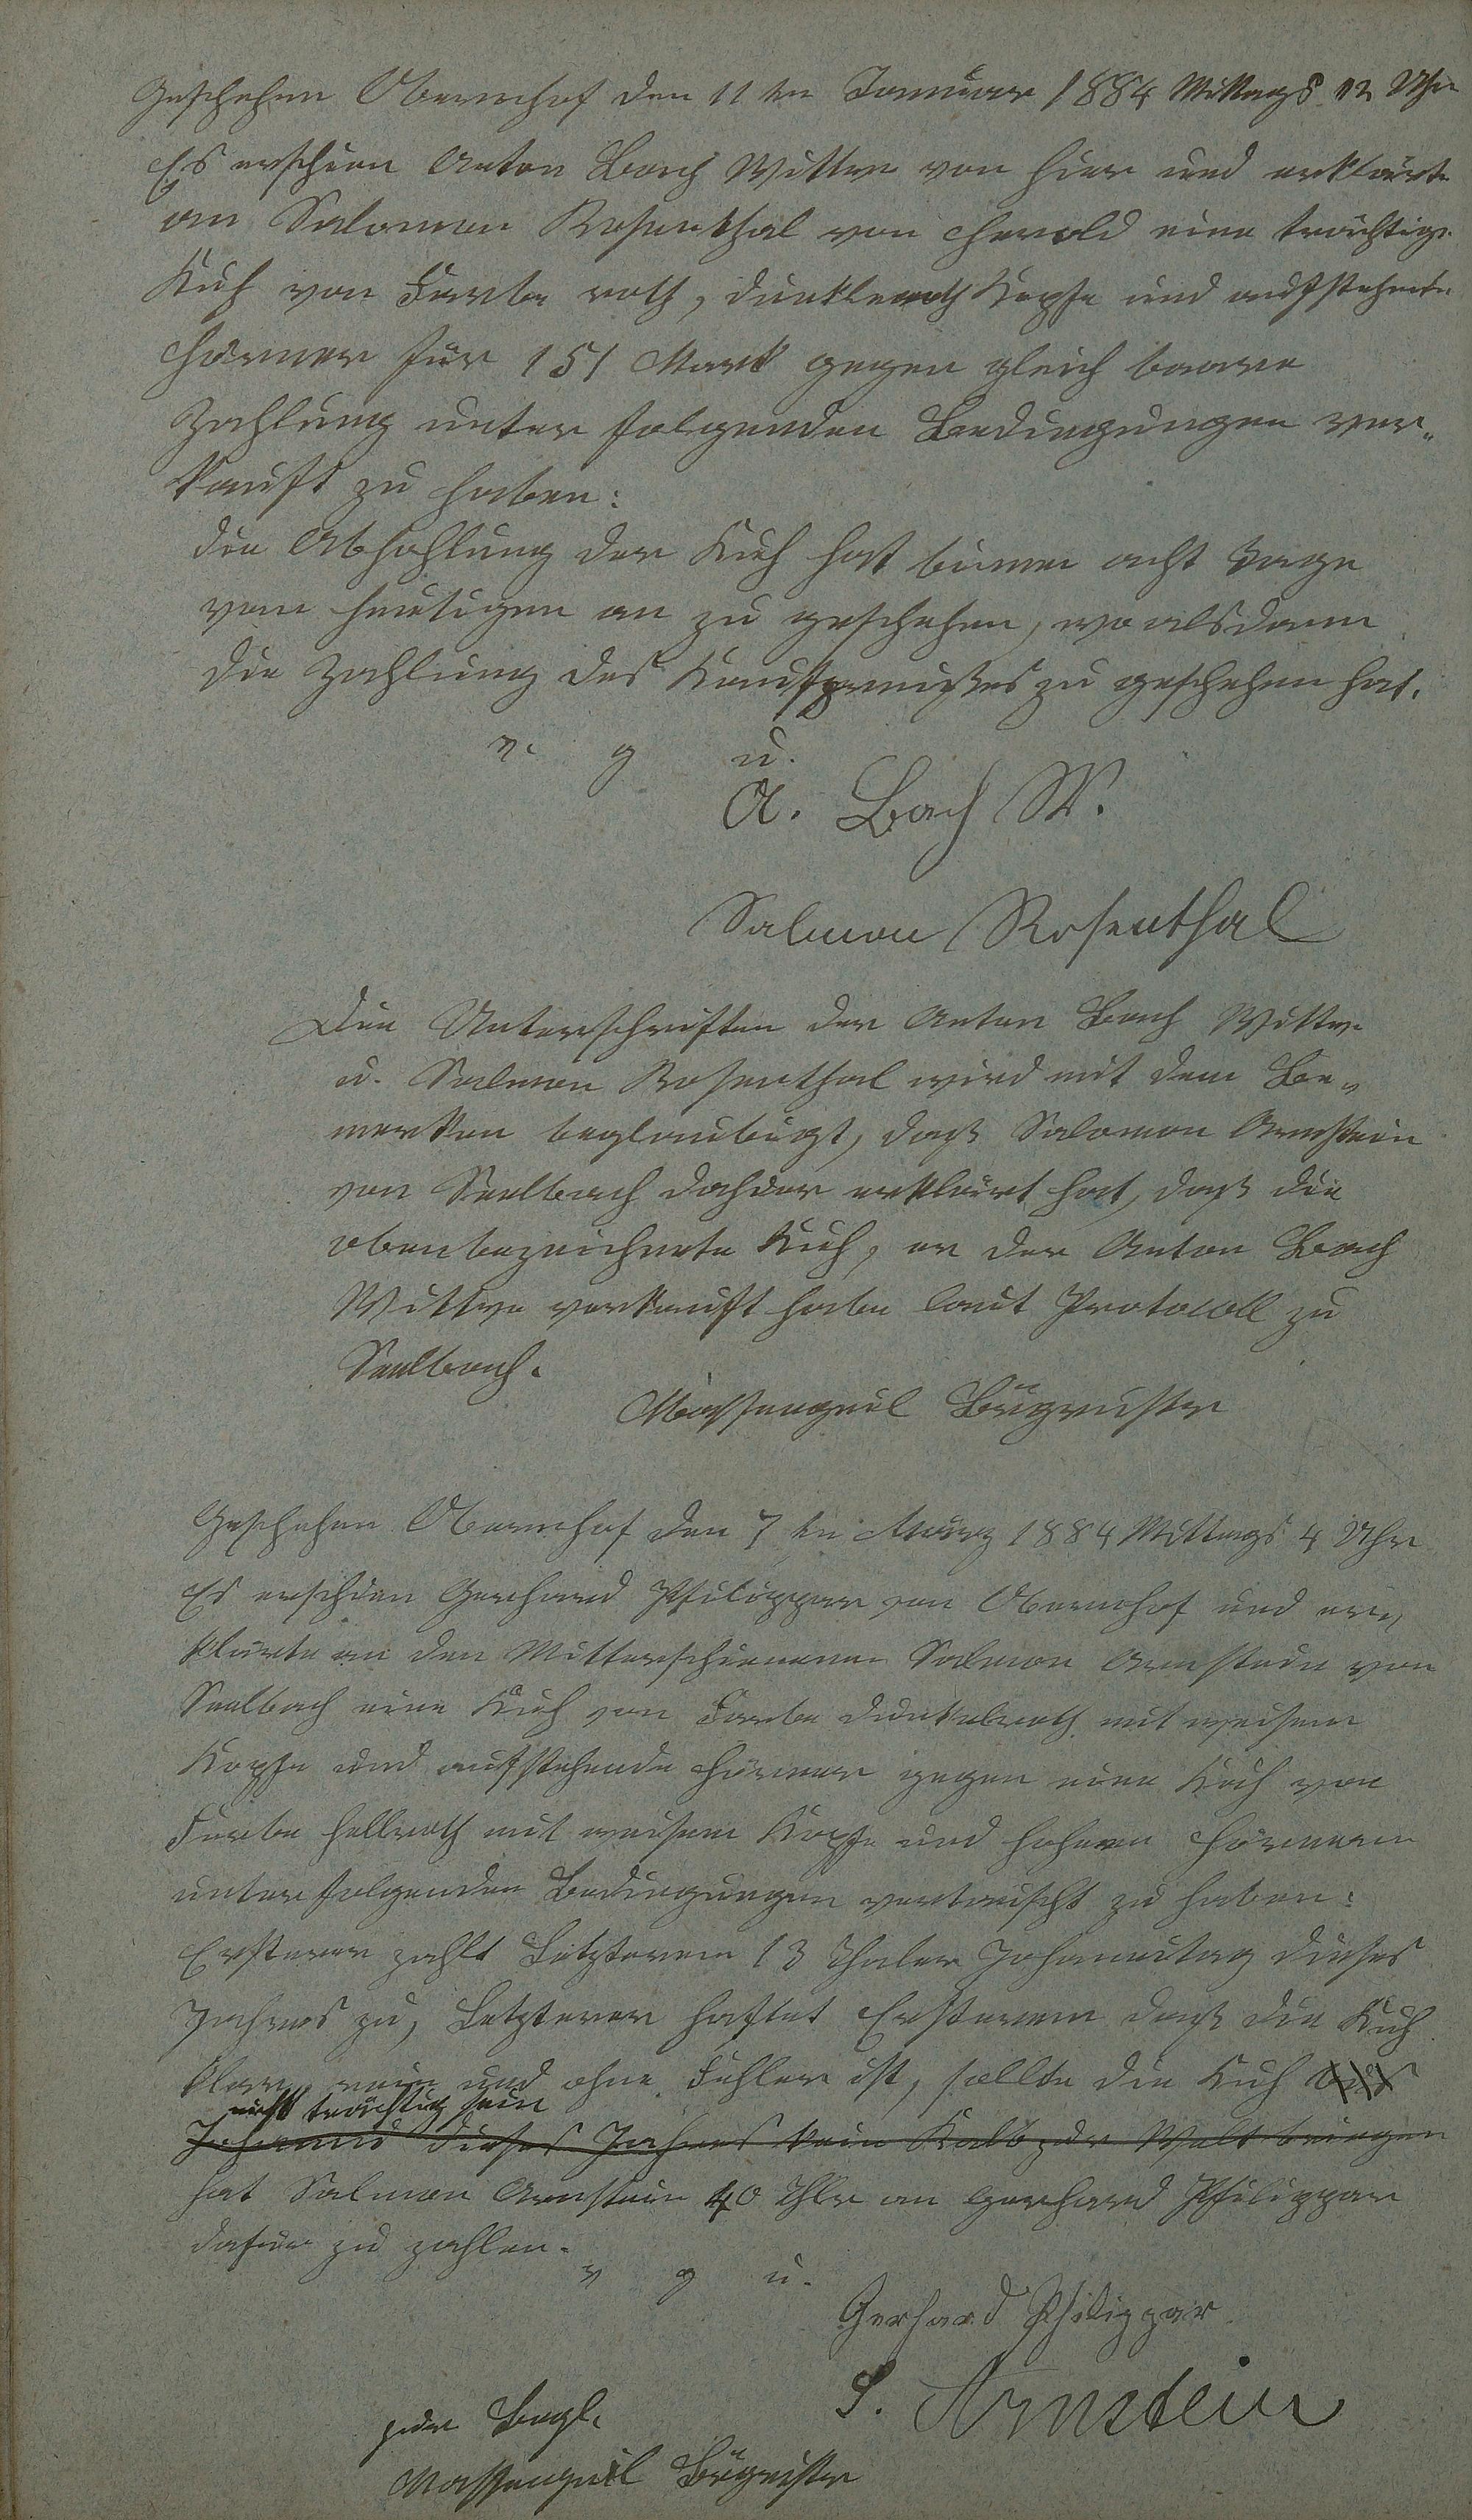 Geschehen Obernhof den 11ten Januar 1884 Mittags 12 Uhr
Es erschien Anton Bach Wittwe von hier und erklärte
an Salomon Rosenthal von Herold eine trächtige
Kuh von Farbe roth, dunkleroth Kopfe und aufstehende
Hörner für 151 Mark gegen gleich baare
Zahlung unter folgenden Bedingungen ver„
kauft zu haben:
die Abhohlung der Kuh hat binnen acht Tage
vom heutigen an zu geschehen, wo alsdann
die Zahlung des Kaufpreißes zu geschehen hat.
v. g u.
A. Bach W.
Salmon Rosenthal
Die Unterschriften der Anton Bach Wittwe
u. Salmon Rosenthal wird mit dem Be„
merken beglaubigt, daß Salomon Arnstein
von Seelbach dahier erklärt hat, daß die
obenbezeichnete Kuh, er der Anton Bach
Wittwe verkauft habe laut Protocoll zu
Seelbach.
Massengeil Bürgmstr
Geschehen Obernhof den 7ten März 1884 Mittags 4 Uhr
Es erschien Gerhard Philippar von Obernhof und er„
klärte an den Mitterschienenen Salmon Arnstein von
Seelbach eine Kuh von Farbe dunkelroth mit weisem
Kopfe und aufstehende Hörner gegen eine Kuh von
Farbe hellroth mit weisem Kopfe und hohen Hörnern
unter folgenden Bedingungen vertauscht zu haben:
Ersterer zahlt Letzterem 13 Thaler Johannitag dieses
Jahres zu, Letzterer haftet Ersterem daß die Kuh
klar, rein und ohne Fehler ist, sollte die Kuh bis
nicht trächtig sein
Johanni dieses Jahres kein Kalb zur Welt bringen
hat Salmon Arnstein 40 Thlr an Gerhard Philippar
dafür zu zahlen.
v g u.
Gerhard Philippar
S. Arnstein
zur Begl.
Massengeil Bürgmstr